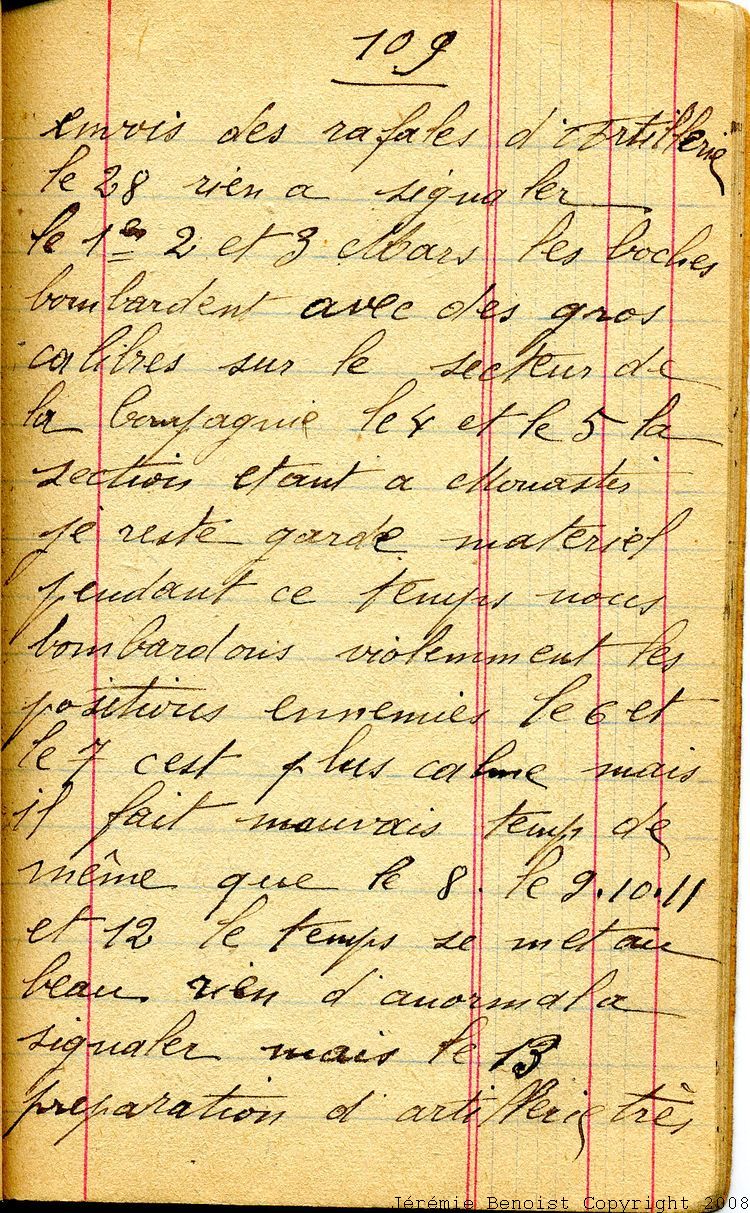 109
envois des rafales d'Artillerie
le 28 rien a signaler
le 1er 2 et 3 Mars les boches
bombardent avec des gros
calibres sur le secteur de
la Compagnie le 4 et le 5 la
section etant a Monastir
je reste garde materiel
pendant ce temps nous
bombardons violemment les
positions ennemies le 6 et
le 7 cest plus calme mais
il fait mauvais temp de
même que le 8. le 9.10.11
et 12 le temps se met au
beau rien d'anormal a
signaler mais le 13
preparation d'artillerie très
Jérémie Benoist Copyright 2008